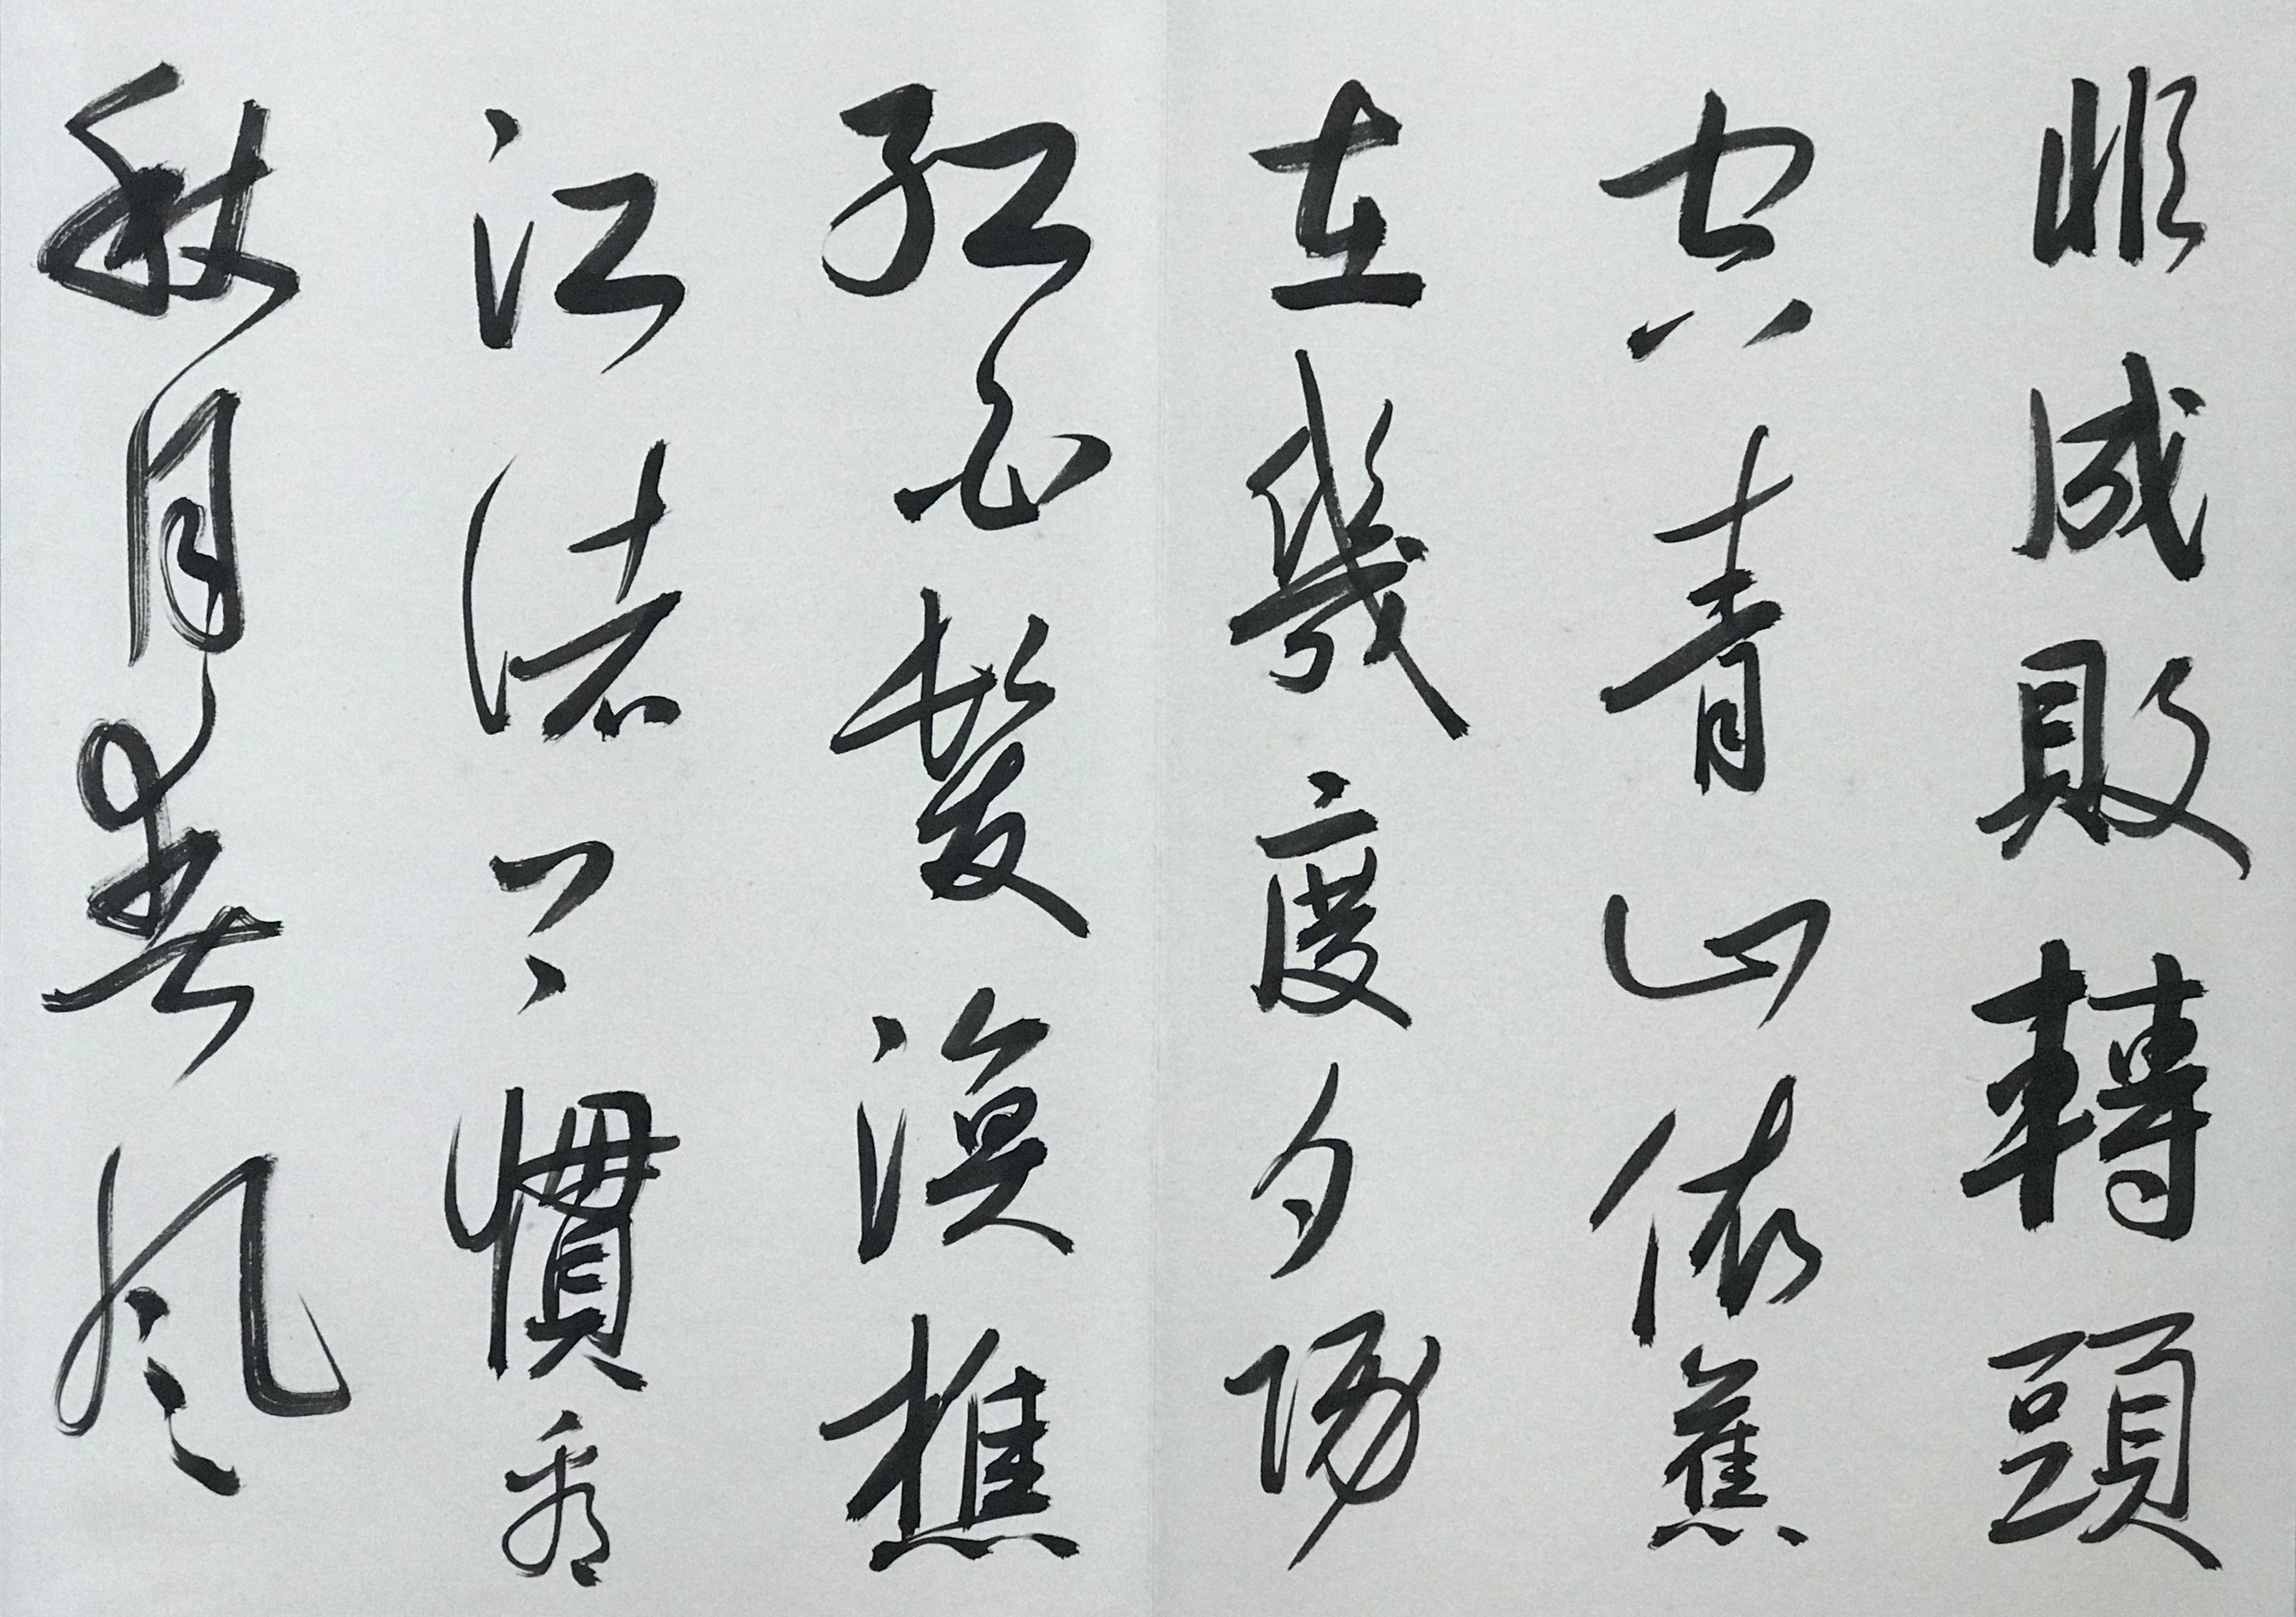 非成敗轉頭
空青山依舊
在幾度夕陽
紅白髮漁樵
江渚上慣看
秋月春風